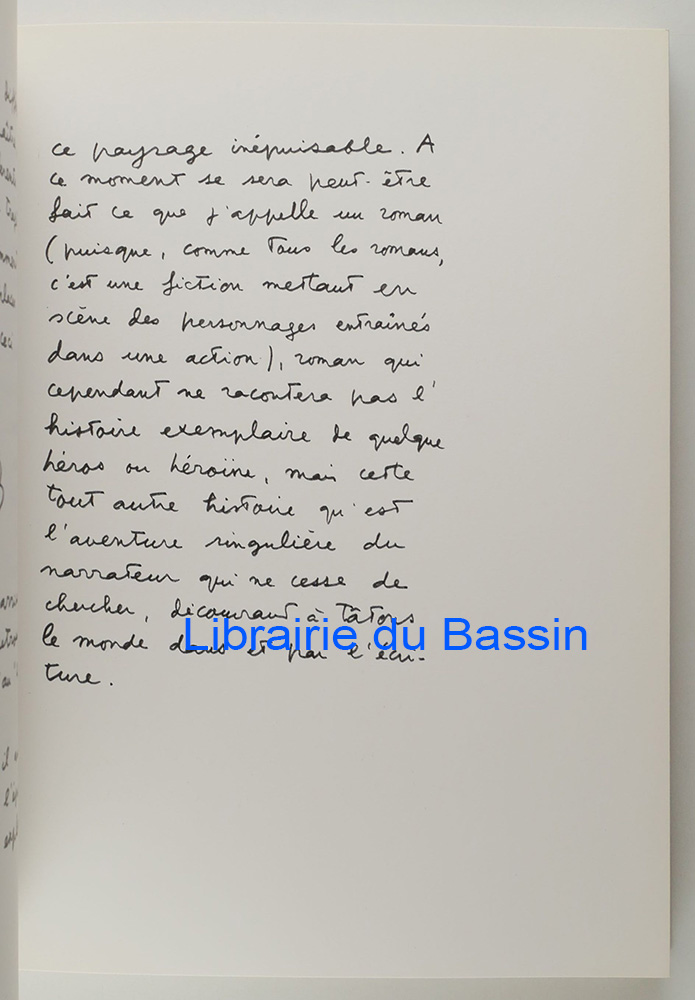 ce paysage inépuisable. A
ce moment se sera peut-être
fait ce que j'appelle un roman
(puisque, comme tous les romans,
c'est une fiction mettant en
scène des personnages entraînés
dans une action), roman qui
cependant ne racontera pas l'
histoire exemplaire de quelque
héros ou héroïne, mais cette
tout autre histoire qu'est
l'aventure singulière du
narrateur qui ne cesse de
chercher, découvrant à tâtons
le monde dans et par l'écri-
ture.
Librairie du Bassin